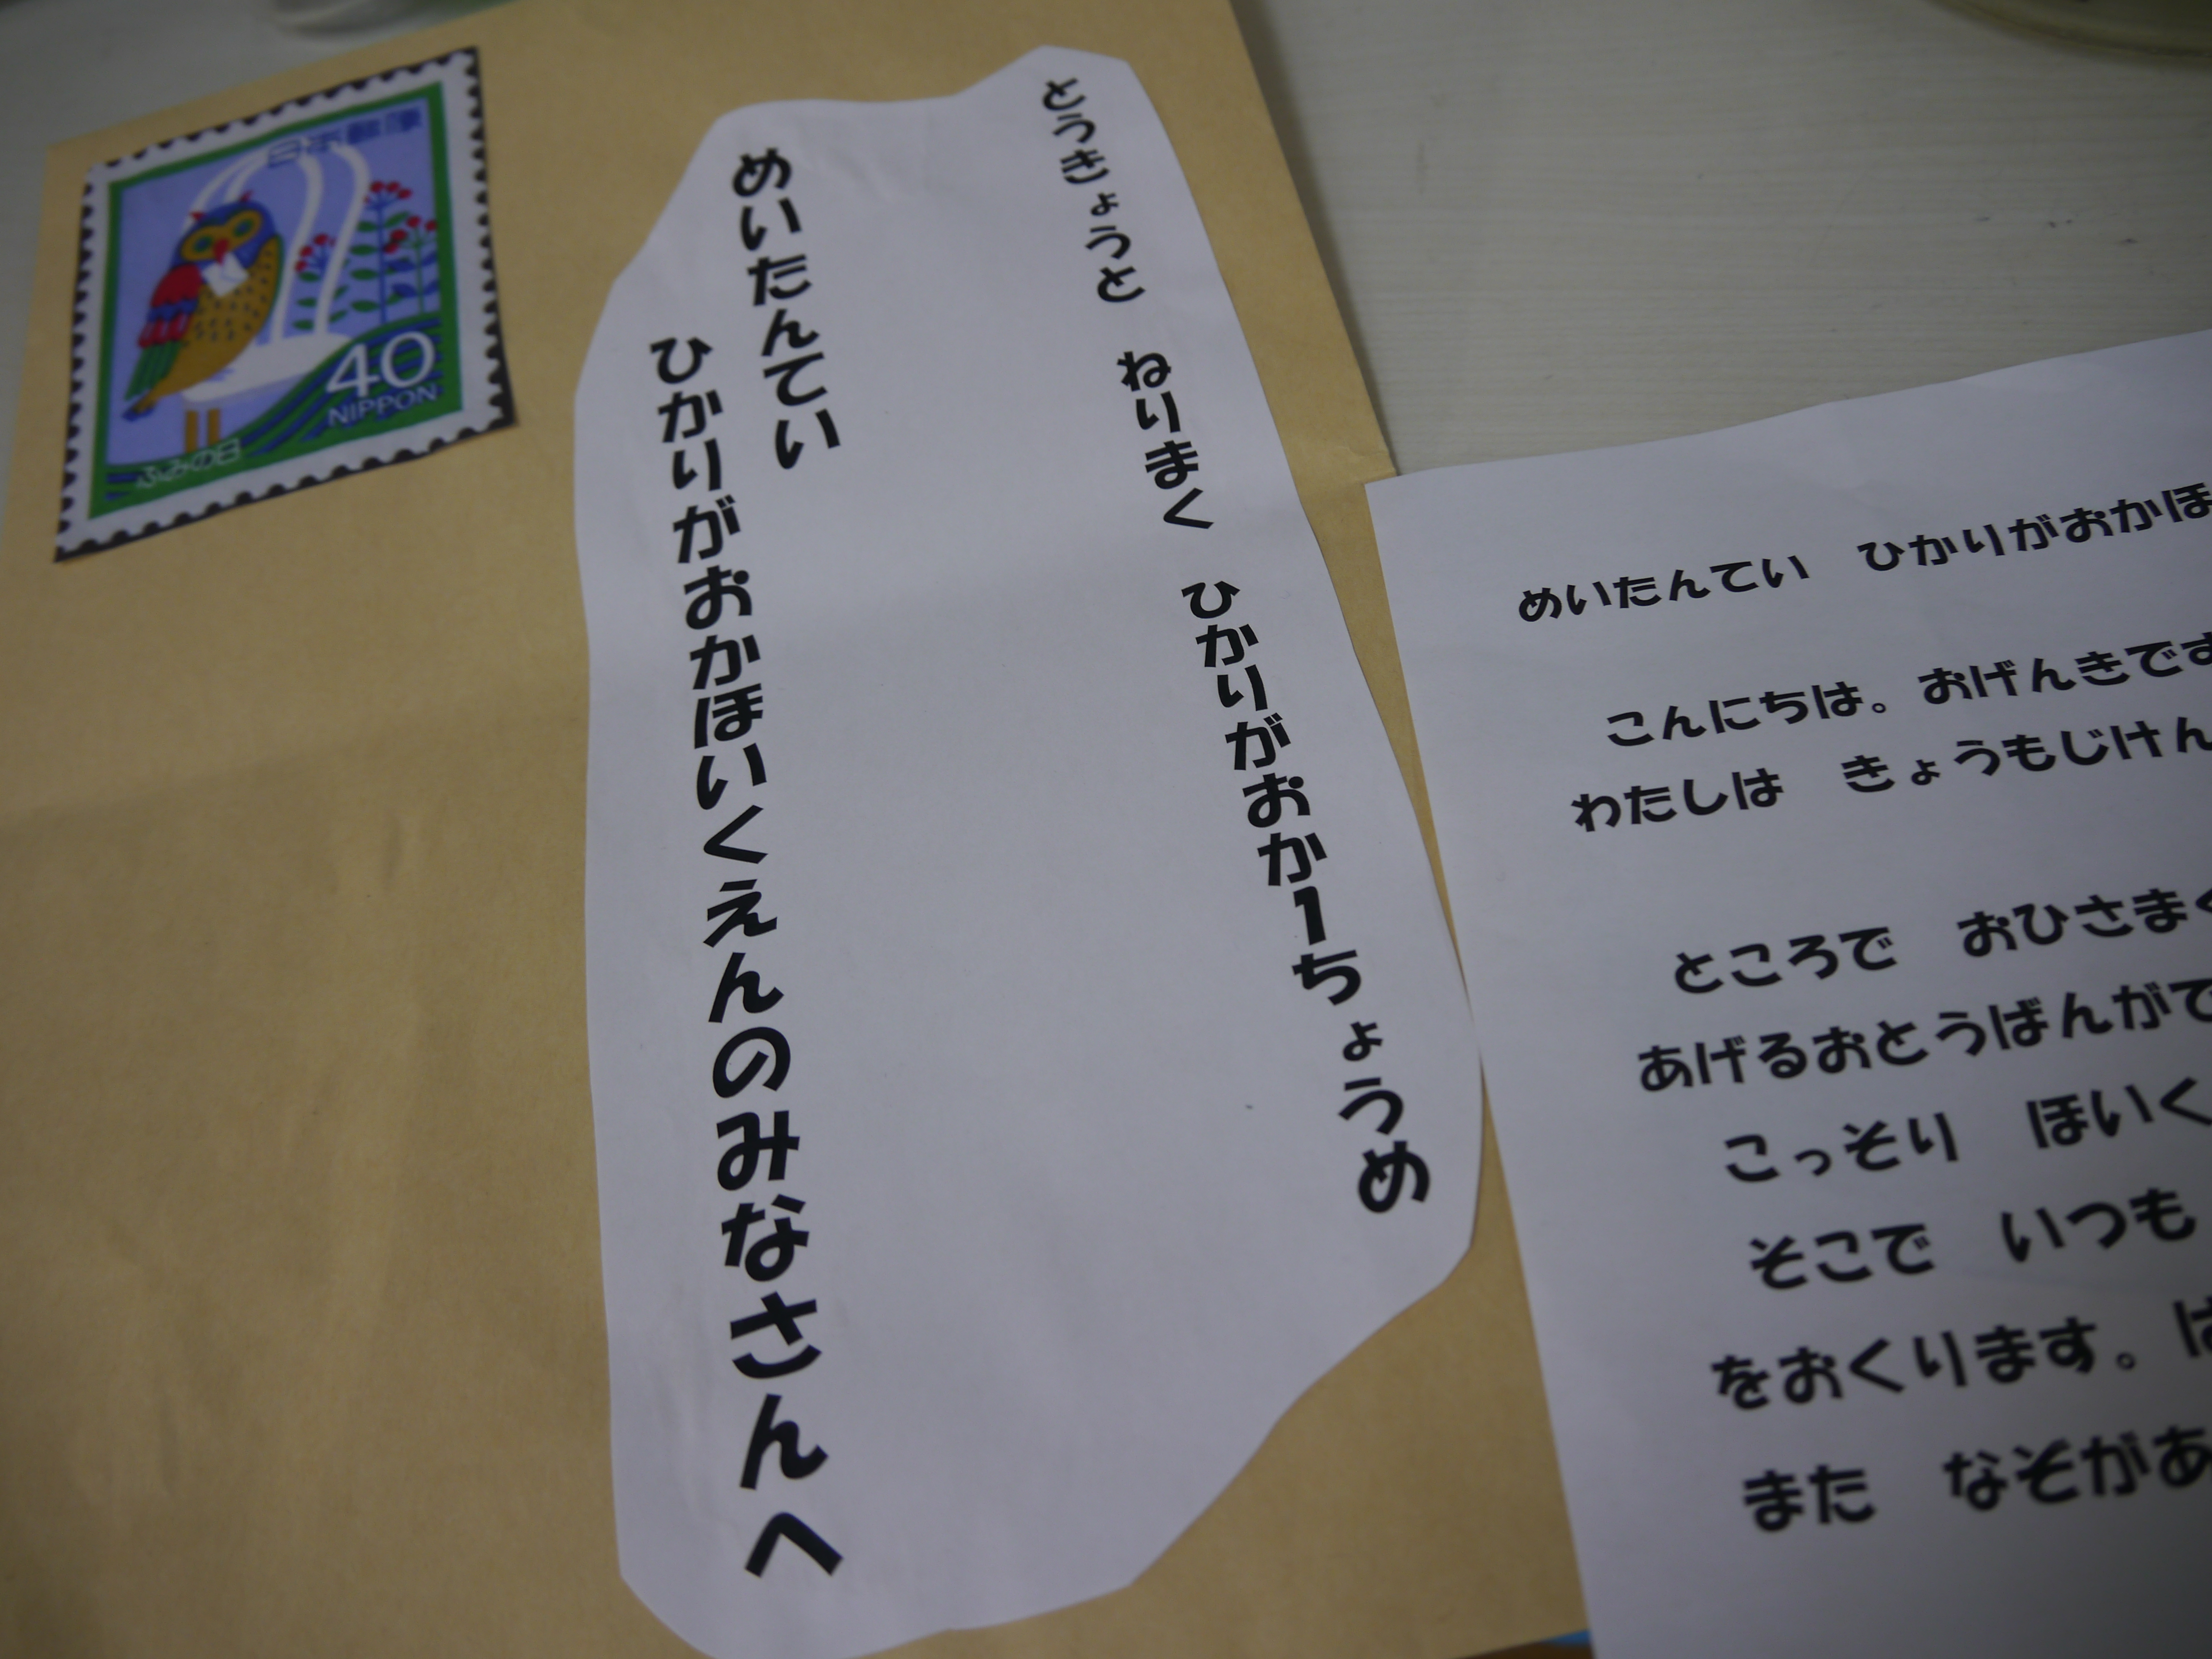 日本郵便
40
NIPPON
ふみの日
とうきょうと ねりまく ひかりがおか1ちょうめ
めいたんてい
ひかりがおかほいくえんのみなさんへ
めいたんてい ひかりがおかほ
こんにちは。おげんきです
わたしは きょうもじけん
ところで おひさまく
あげるおとうばんがで
こっそり ほいく
そこで いつも
をおくります。は
また なぞがあ